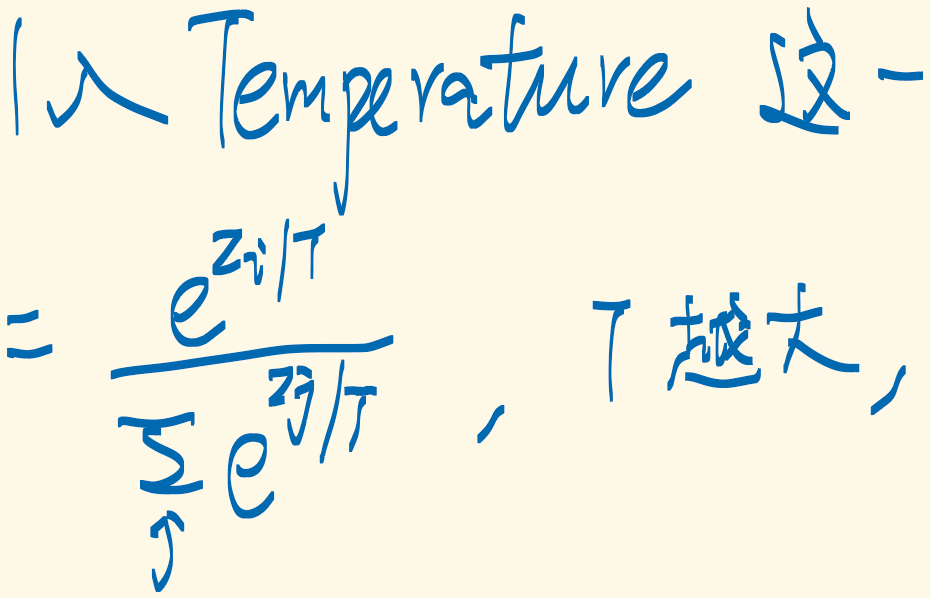 入 Temperature 这一
= \frac{e^{z_i/T}}{\sum_j e^{z_j/T}} , T 越大,